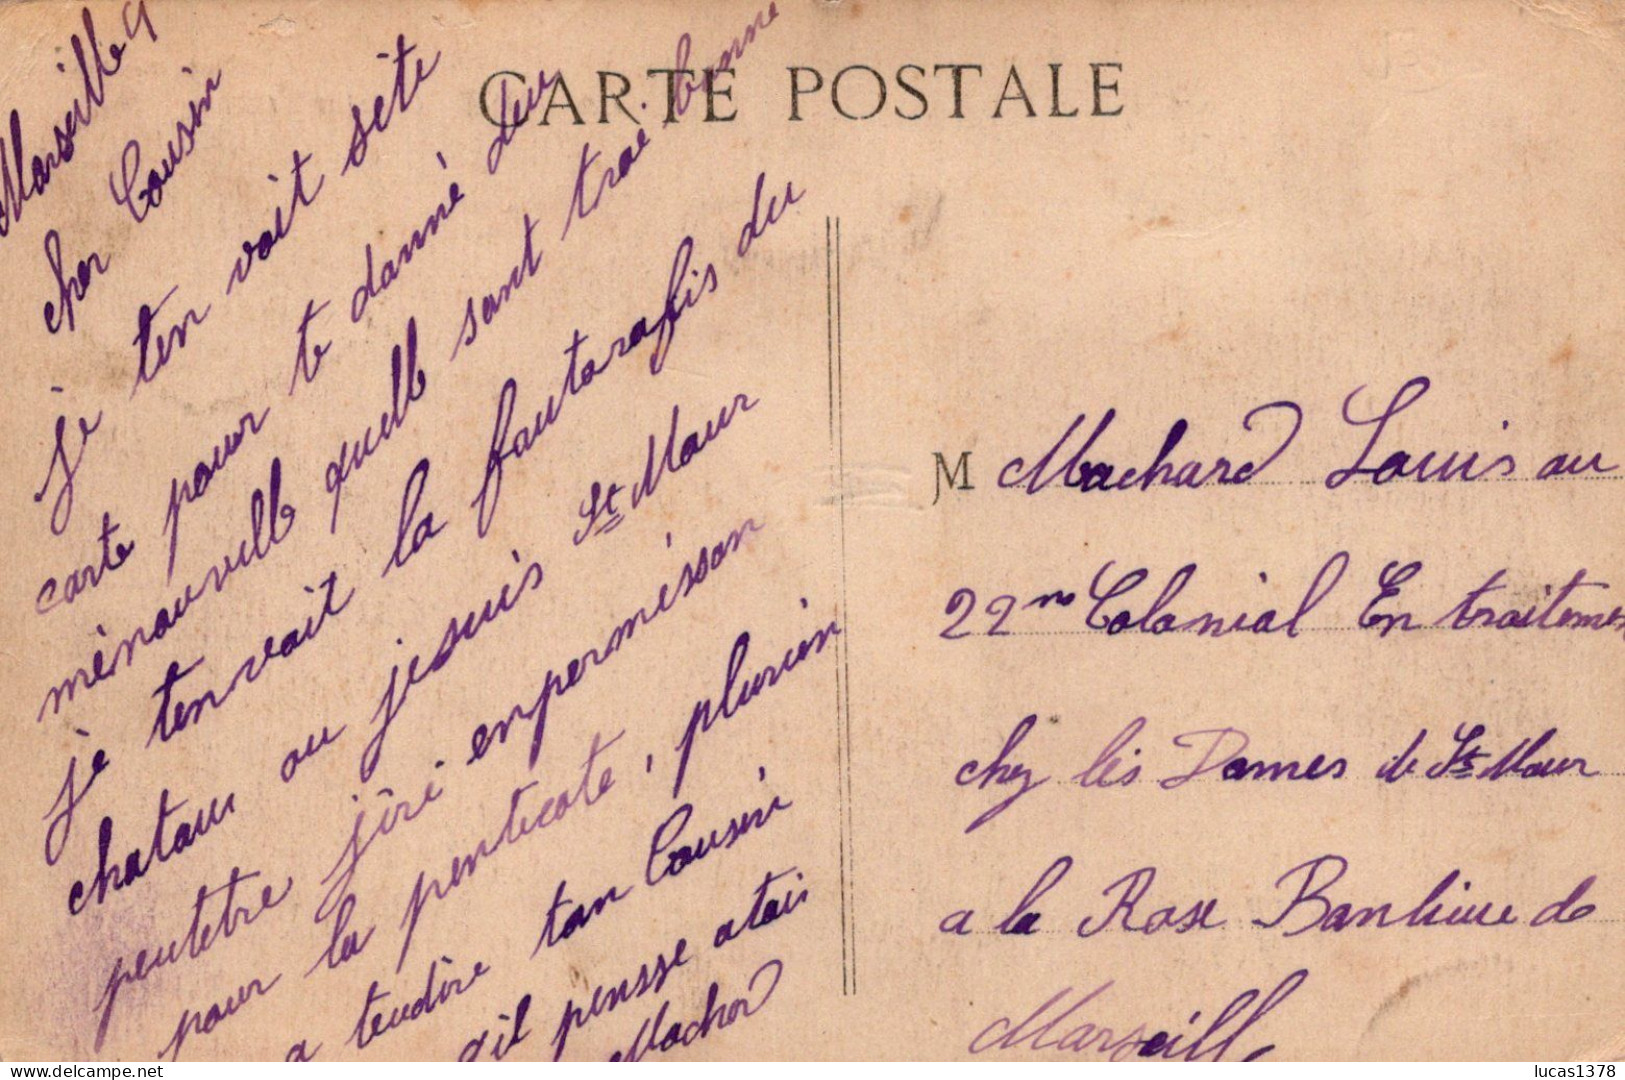 CARTE POSTALE
Marseille 9
cher Cousin
je ten voit séte
carte pour te danné deu
ménouvelle quelle sont trai bonne
je tenvait la fautorafis du
chatau ou jesuis St Maur
peutetre jîri enpermésson
pour la penticote, plurien
a teudire ton Cousin
qil pensse atois
Machard
M Machard Louis au
22me Colonial En traitemen
chez lés Dames de St Maur
a la Rose Banlieue de
Marseille
delcampe.net
lucas1378